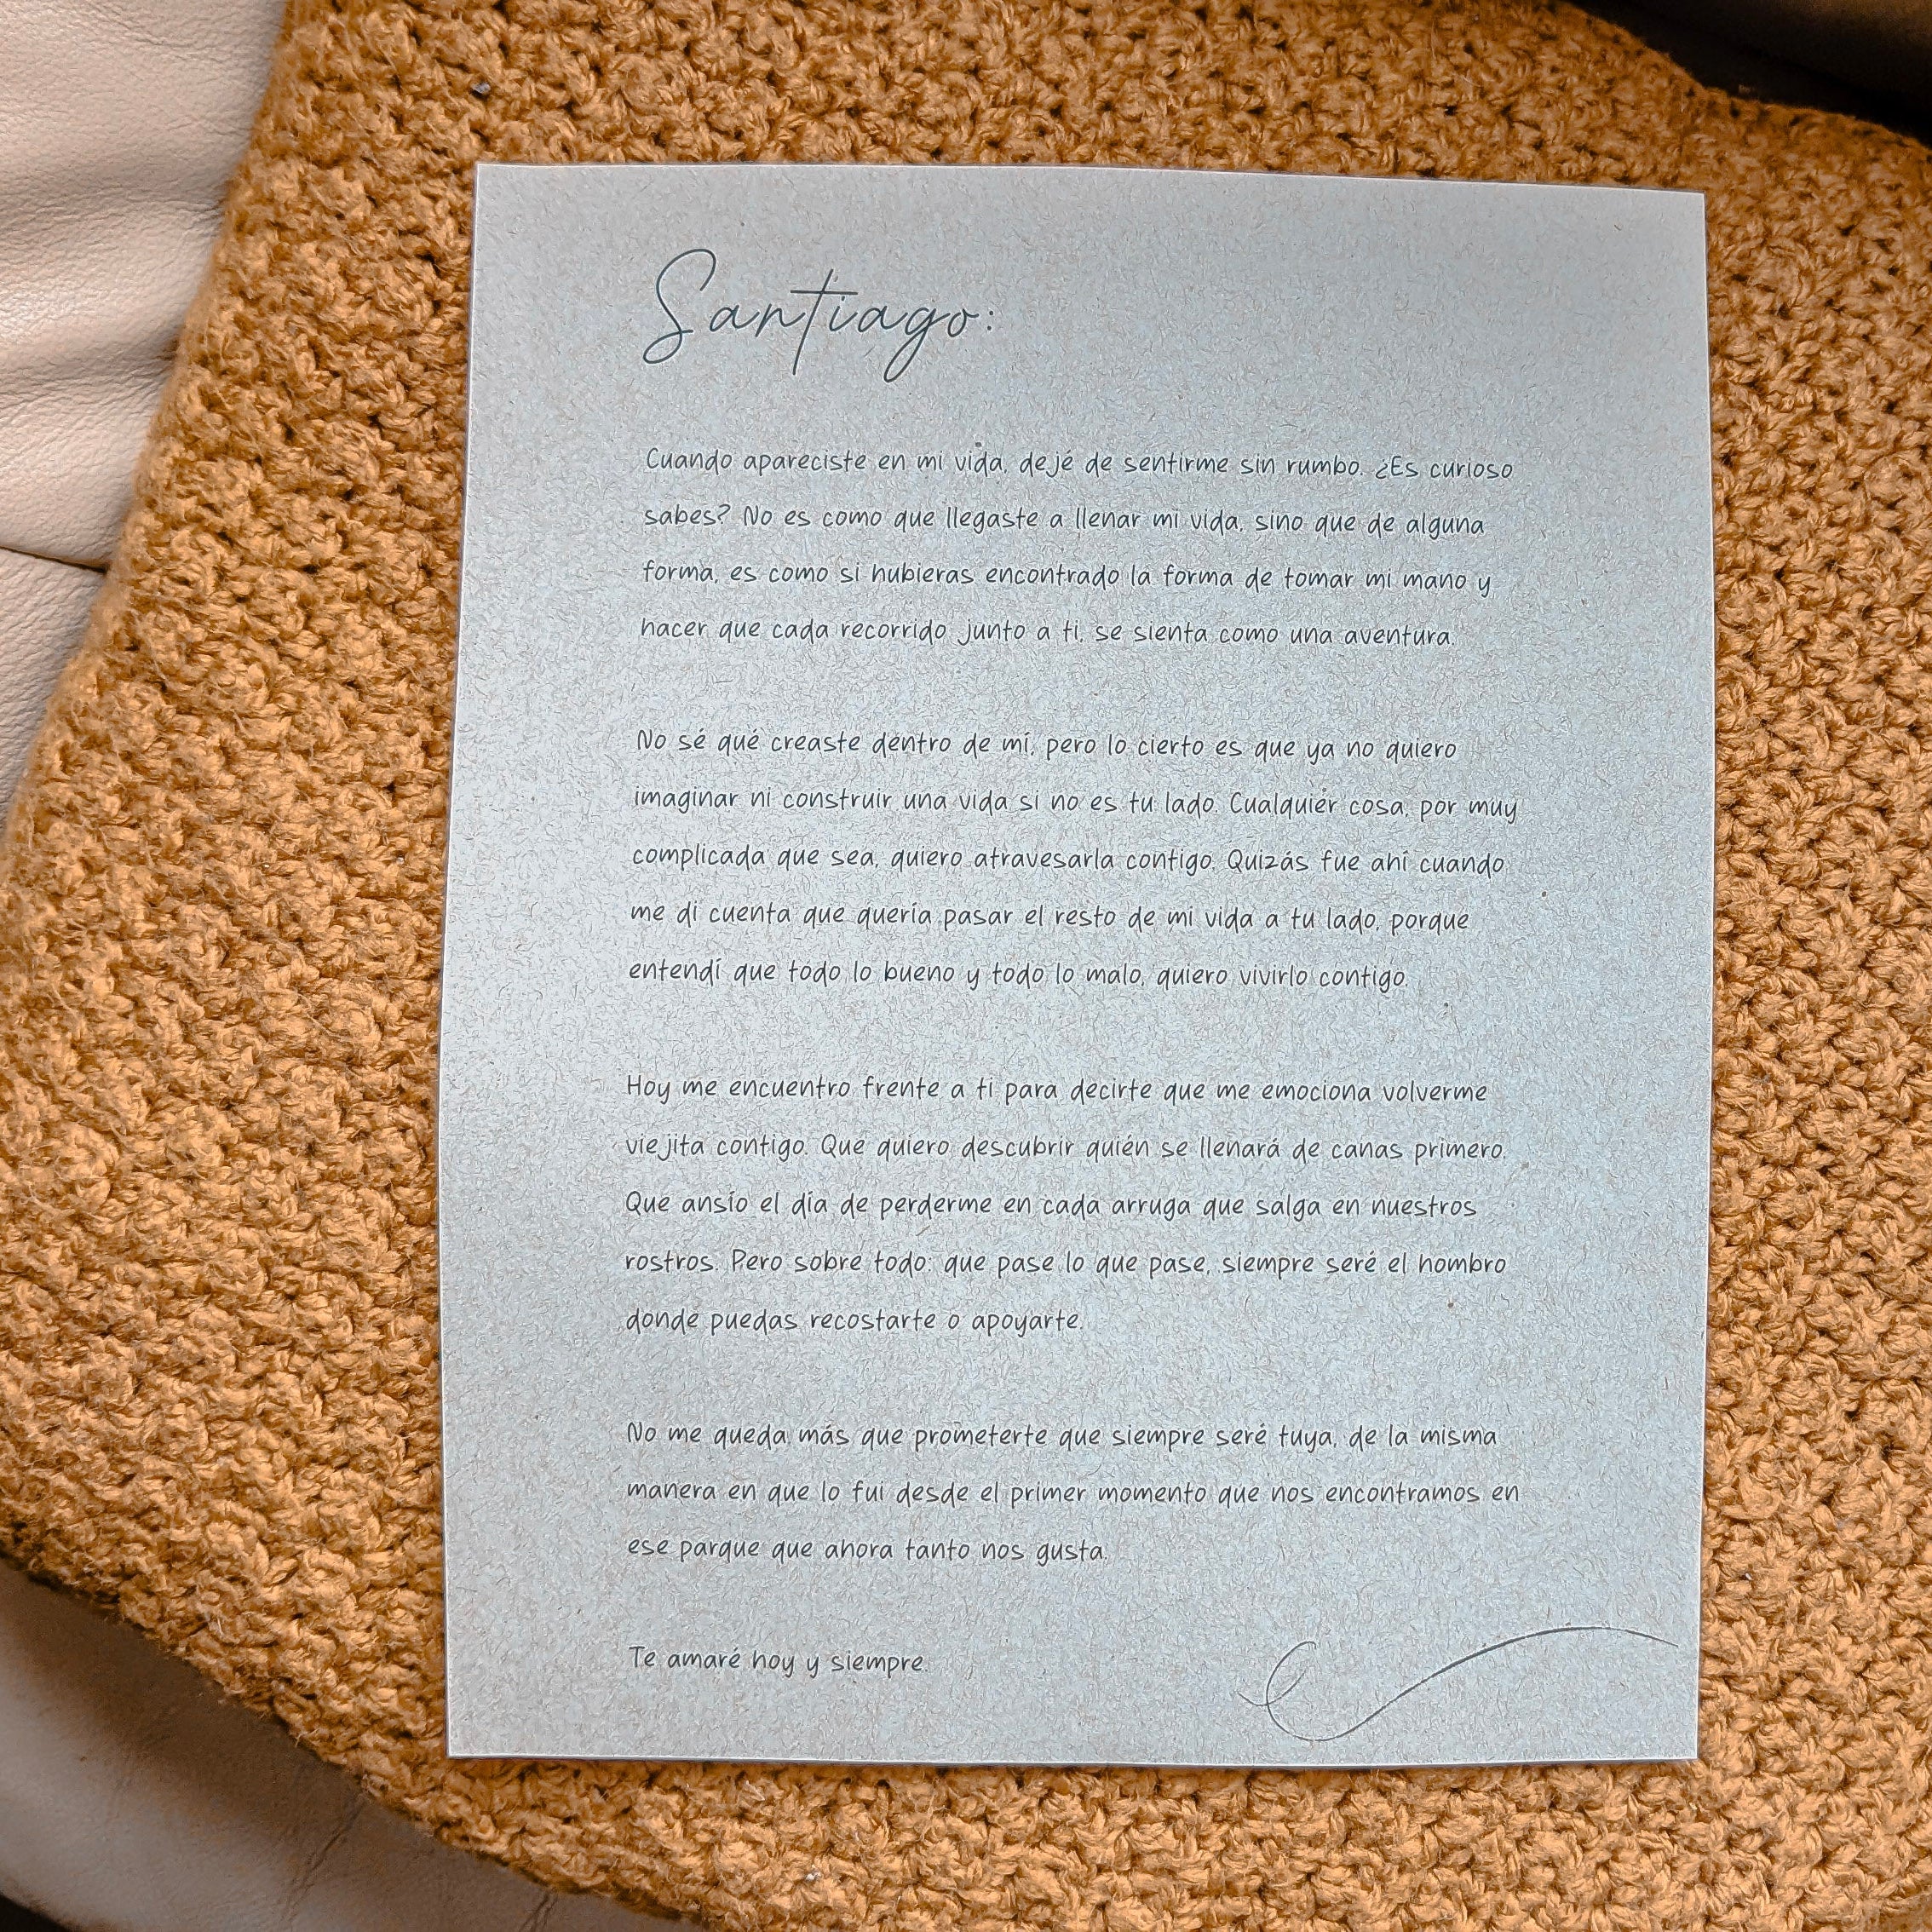 Santiago:
Cuando apareciste en mi vida, dejé de sentirme sin rumbo. ¿Es curioso
sabes? No es como que llegaste a llenar mi vida, sino que de alguna
forma, es como si hubieras encontrado la forma de tomar mi mano y
hacer que cada recorrido junto a ti, se sienta como una aventura.
No sé qué creaste dentro de mí, pero lo cierto es que ya no quiero
imaginar ni construir una vida si no es tu lado. Cualquier cosa, por muy
complicada que sea, quiero atravesarla contigo. Quizás fue ahí cuando
me di cuenta que quería pasar el resto de mi vida a tu lado, porque
entendí que todo lo bueno y todo lo malo, quiero vivirlo contigo.
Hoy me encuentro frente a ti para decirte que me emociona volverme
viejita contigo. Que quiero descubrir quién se llenará de canas primero.
Que ansío el día de perderme en cada arruga que salga en nuestros
rostros. Pero sobre todo: que pase lo que pase, siempre seré el hombro
donde puedas recostarte o apoyarte.
No me queda más que prometerte que siempre seré tuya, de la misma
manera en que lo fui desde el primer momento que nos encontramos en
ese parque que ahora tanto nos gusta.
Te amaré hoy y siempre.